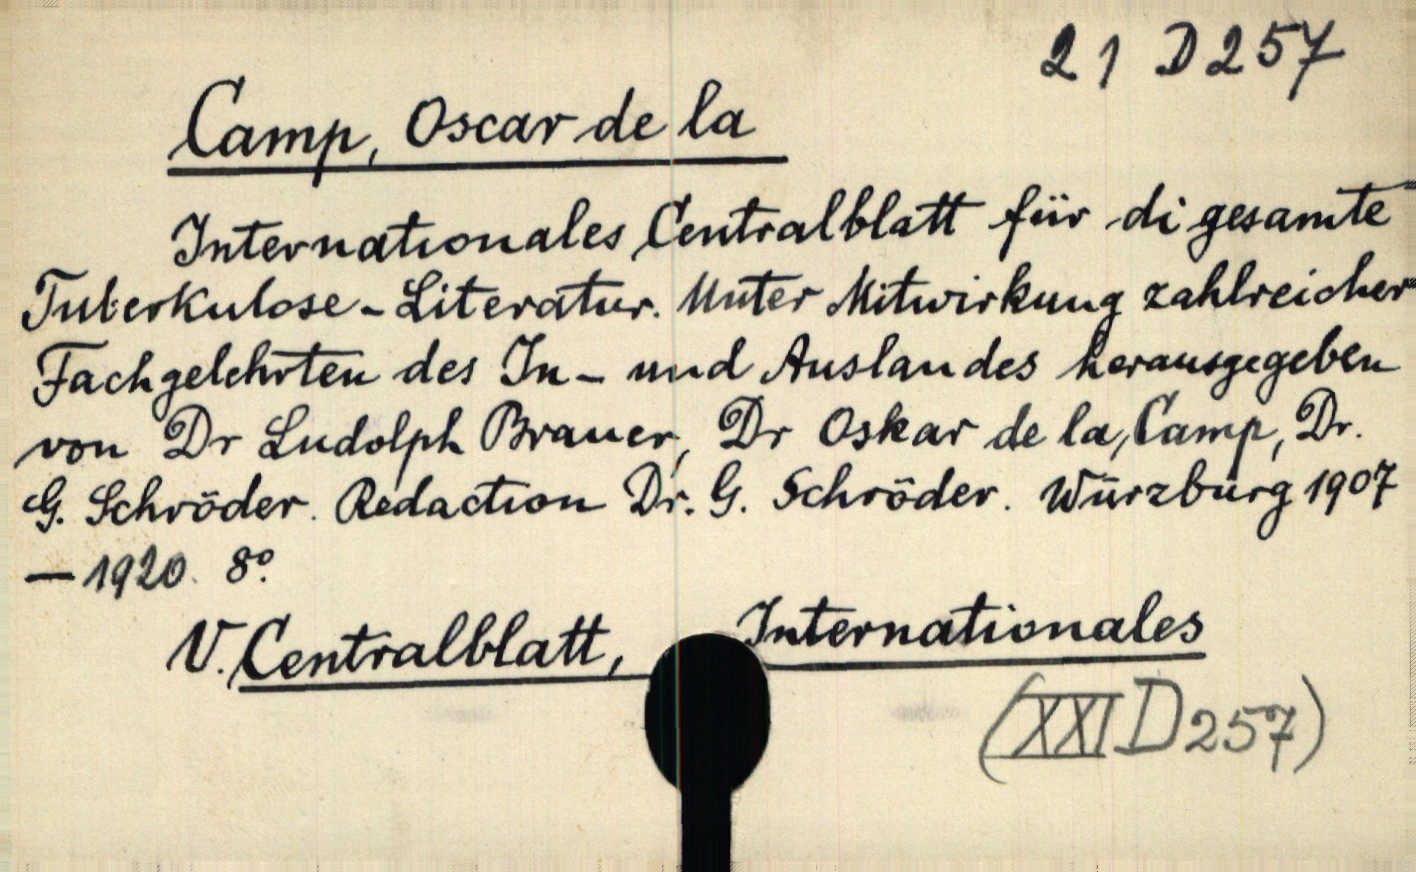 21 D257
Camp, Oscar de la
Internationales Centralblatt für di gesamte
Tuberkulose-Literatur. Unter Mitwirkung zahlreicher
Fachgelehrten des In- und Auslandes herausgegeben
von Dr Ludolph Brauer, Dr Oskar de la, Camp, Dr.
G. Schröder. Redaction Dr. G. Schröder. Würzburg 1907
—1920. 8º.
V. Centralblatt, Internationales
(XXI D 257)